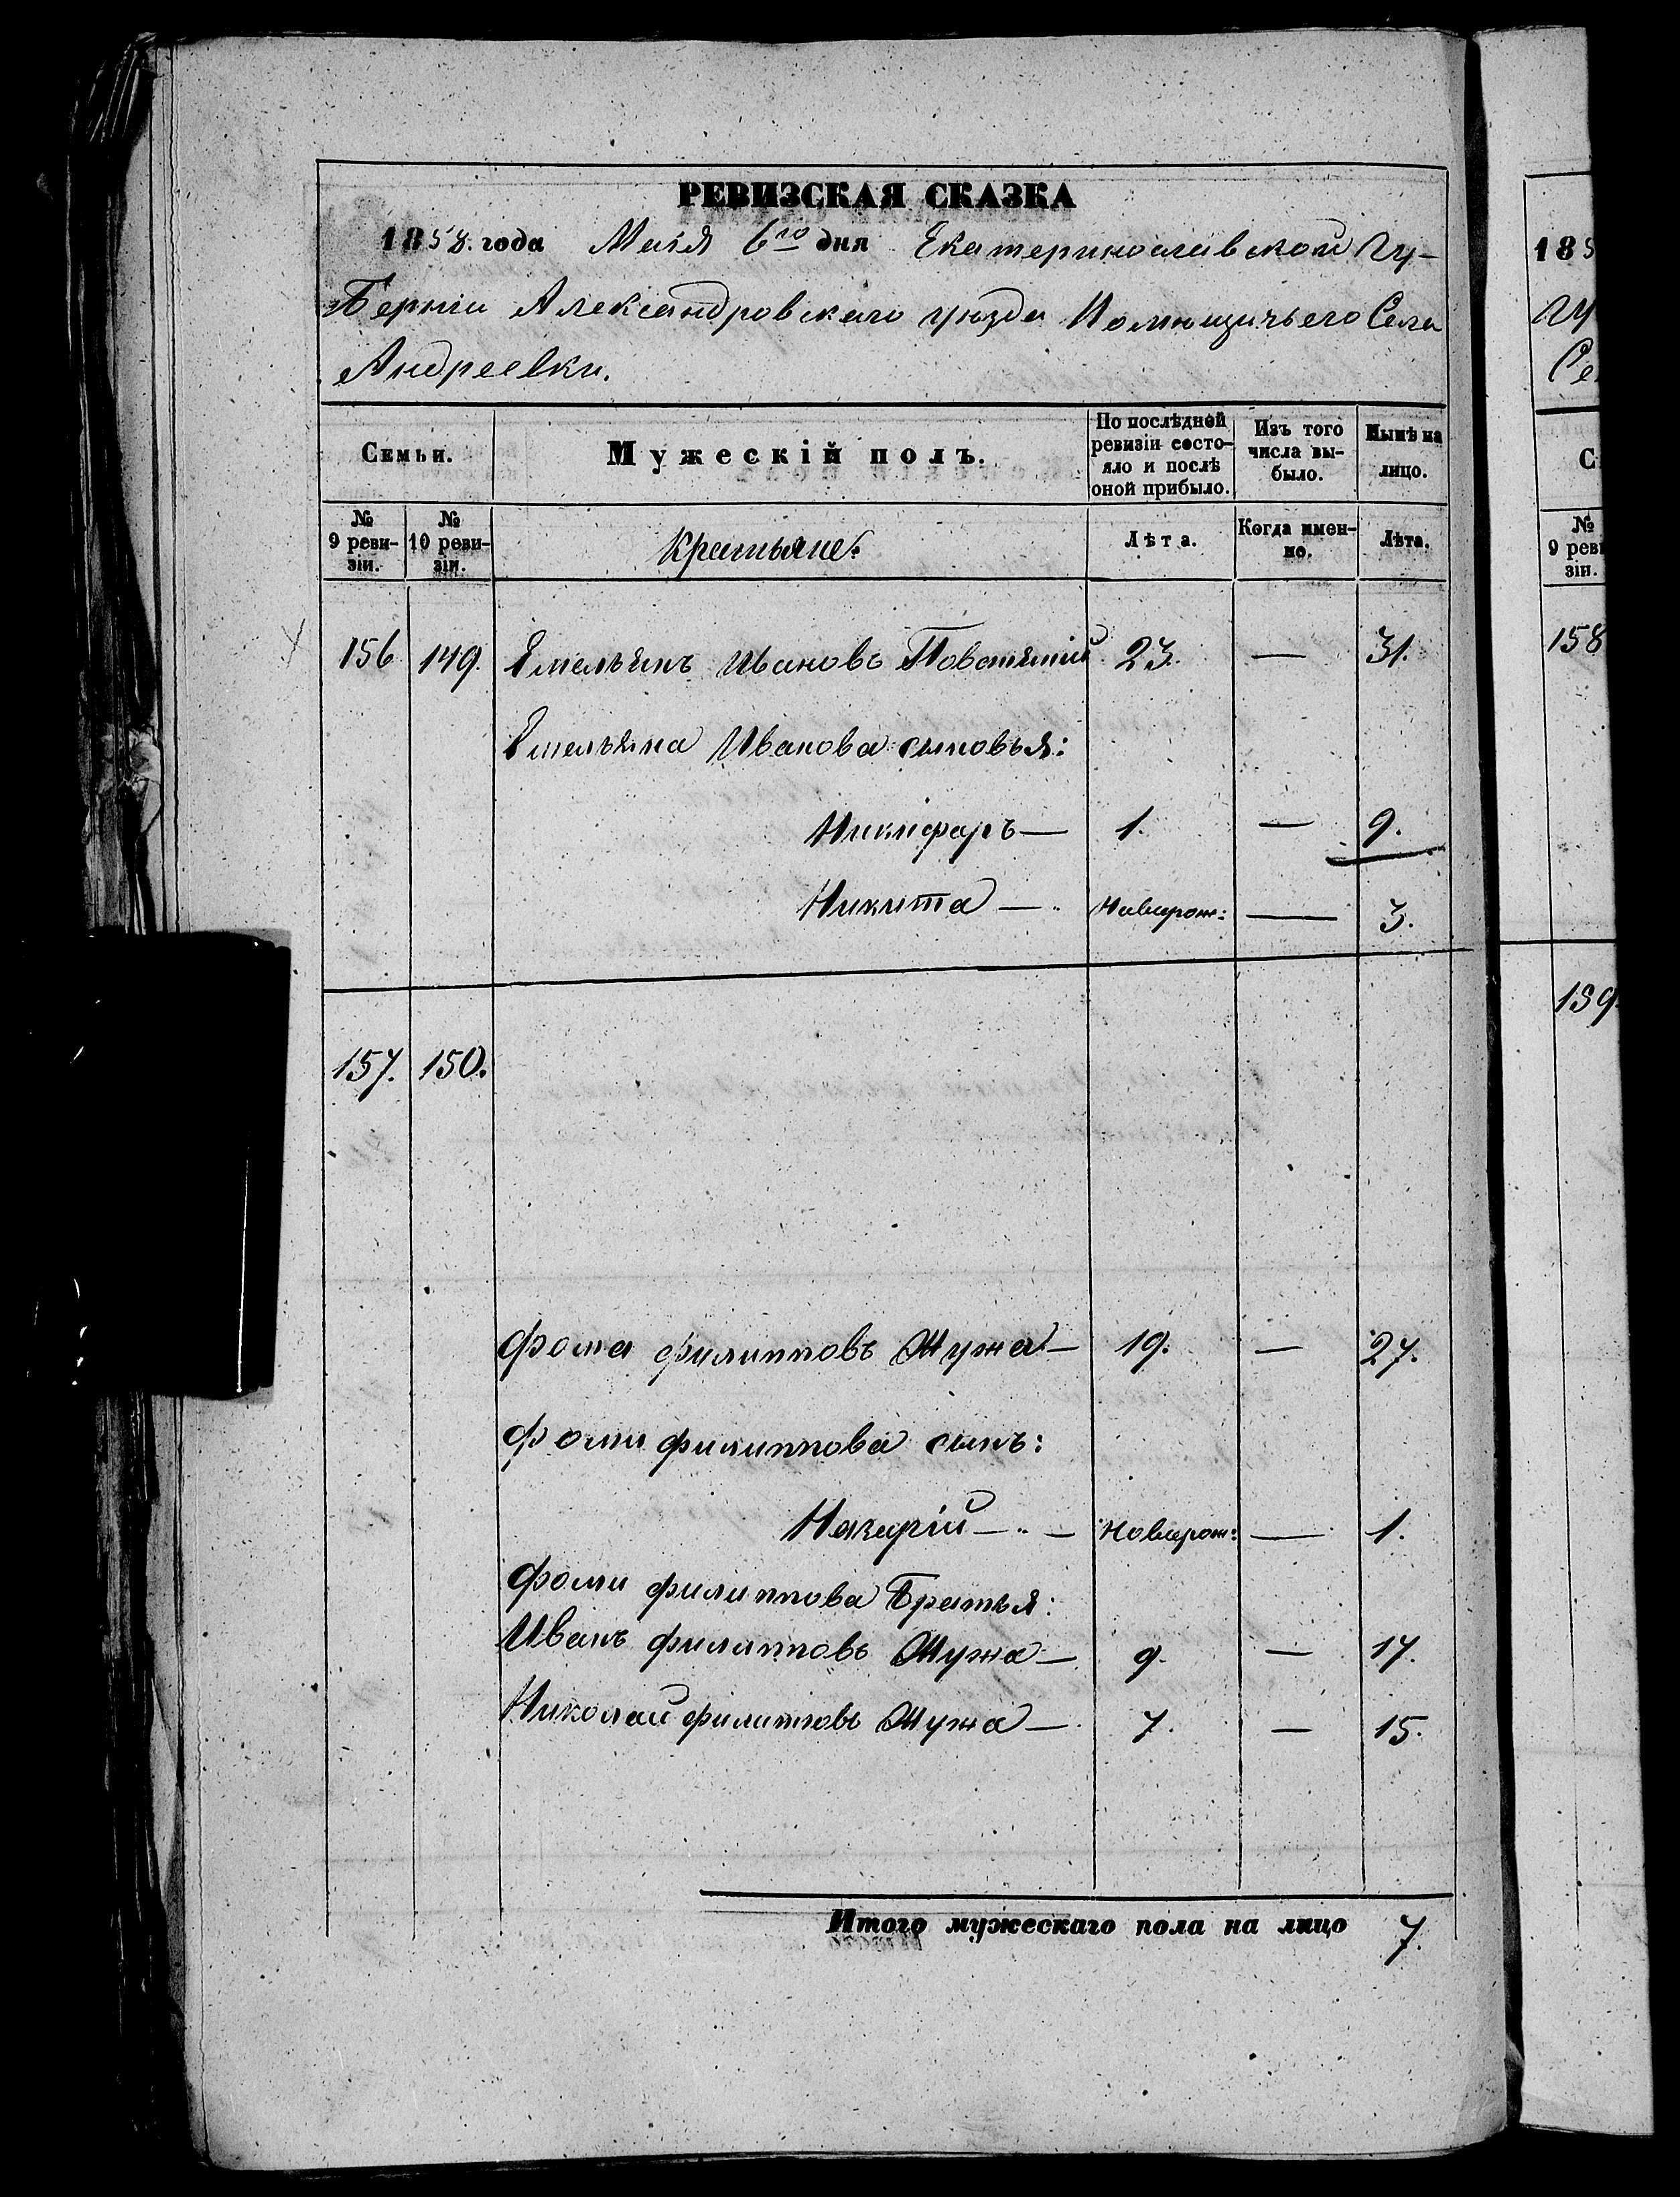 РЕВИЗСКАЯ СКАЗКА
1858. года Маія 6го дня Екатеринославской Гу-
берніи Александровскаго уѣзда Помѣщичьего Села
Андреевки.
Семьи.
Мужескій полъ.
По послѣдней ревизіи состо-
яло и послѣ
оной прибыло.
Изъ того
числа вы-
было.
Нынѣ на
лицо.
№
9 реви-
зіи.
№
10 реви-
зіи.
Крестьяне.
Лѣта.
Когда имен-
но.
Лѣта.
156 149. Емельянъ Ивановъ 23. — 31.
Емельяна Иванова сыновья:
Никифоръ — 1. — 9.
Никита — Новорож: — 3.
157. 150.
Фома Филипповъ Мужа — 19. — 27.
Фомы Филиппова сынъ:
Назарій — Новорож: — 1.
Фомы Филиппова Братья:
Иванъ Филипповъ Мужа — 9. — 17.
Николай Филипповъ Мужа — 7. — 15.
Итого мужескаго пола на лицо 7.
185
Гу
Се
С
№
9 реви
зіи.
158
159.